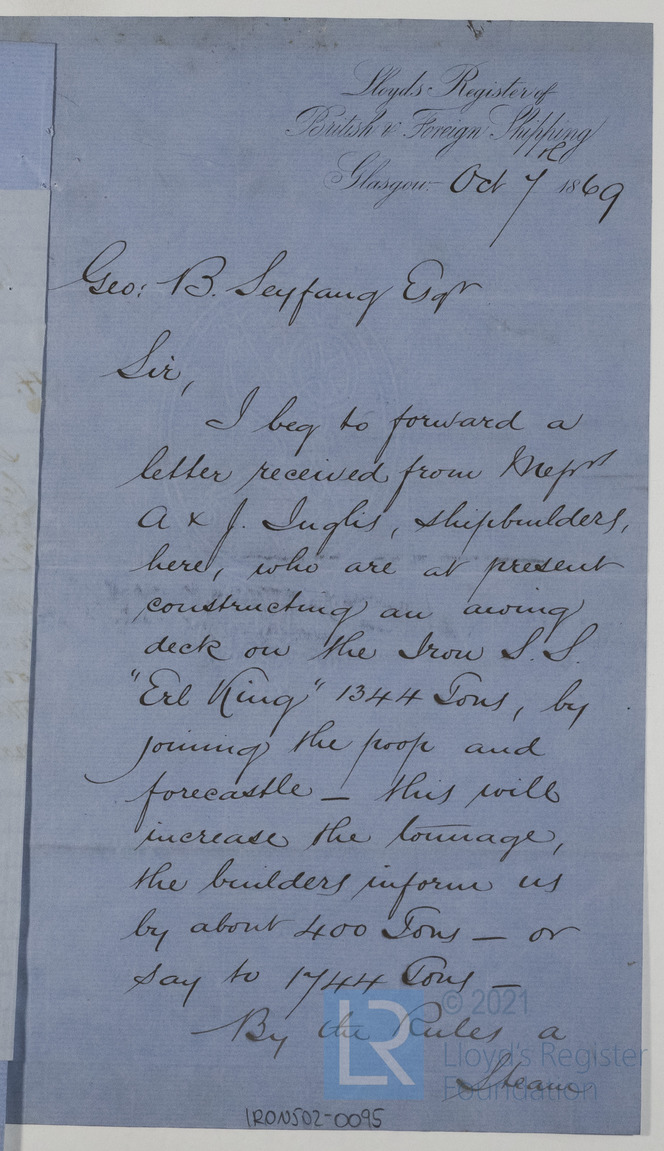 Lloyds Register of
British & Foreign Shipping
Glasgow. Oct 7th 1869
Geo: B. Seyfang Esqr
Sir,
I beg to forward a
letter received from Messrs
A & J. Inglis, shipbuilders,
here, who are at present
constructing an awing
deck on the Iron S.S.
"Erl King" 1344 Tons, by
joining the poop and
forecastle – this will
increase the tonnage,
the builders inform us
by about 400 Tons – or
say to 1744 Tons –
By the Rules a
Steam
LR
© 2021
Lloyd's Register
Foundation
IRON502-0095